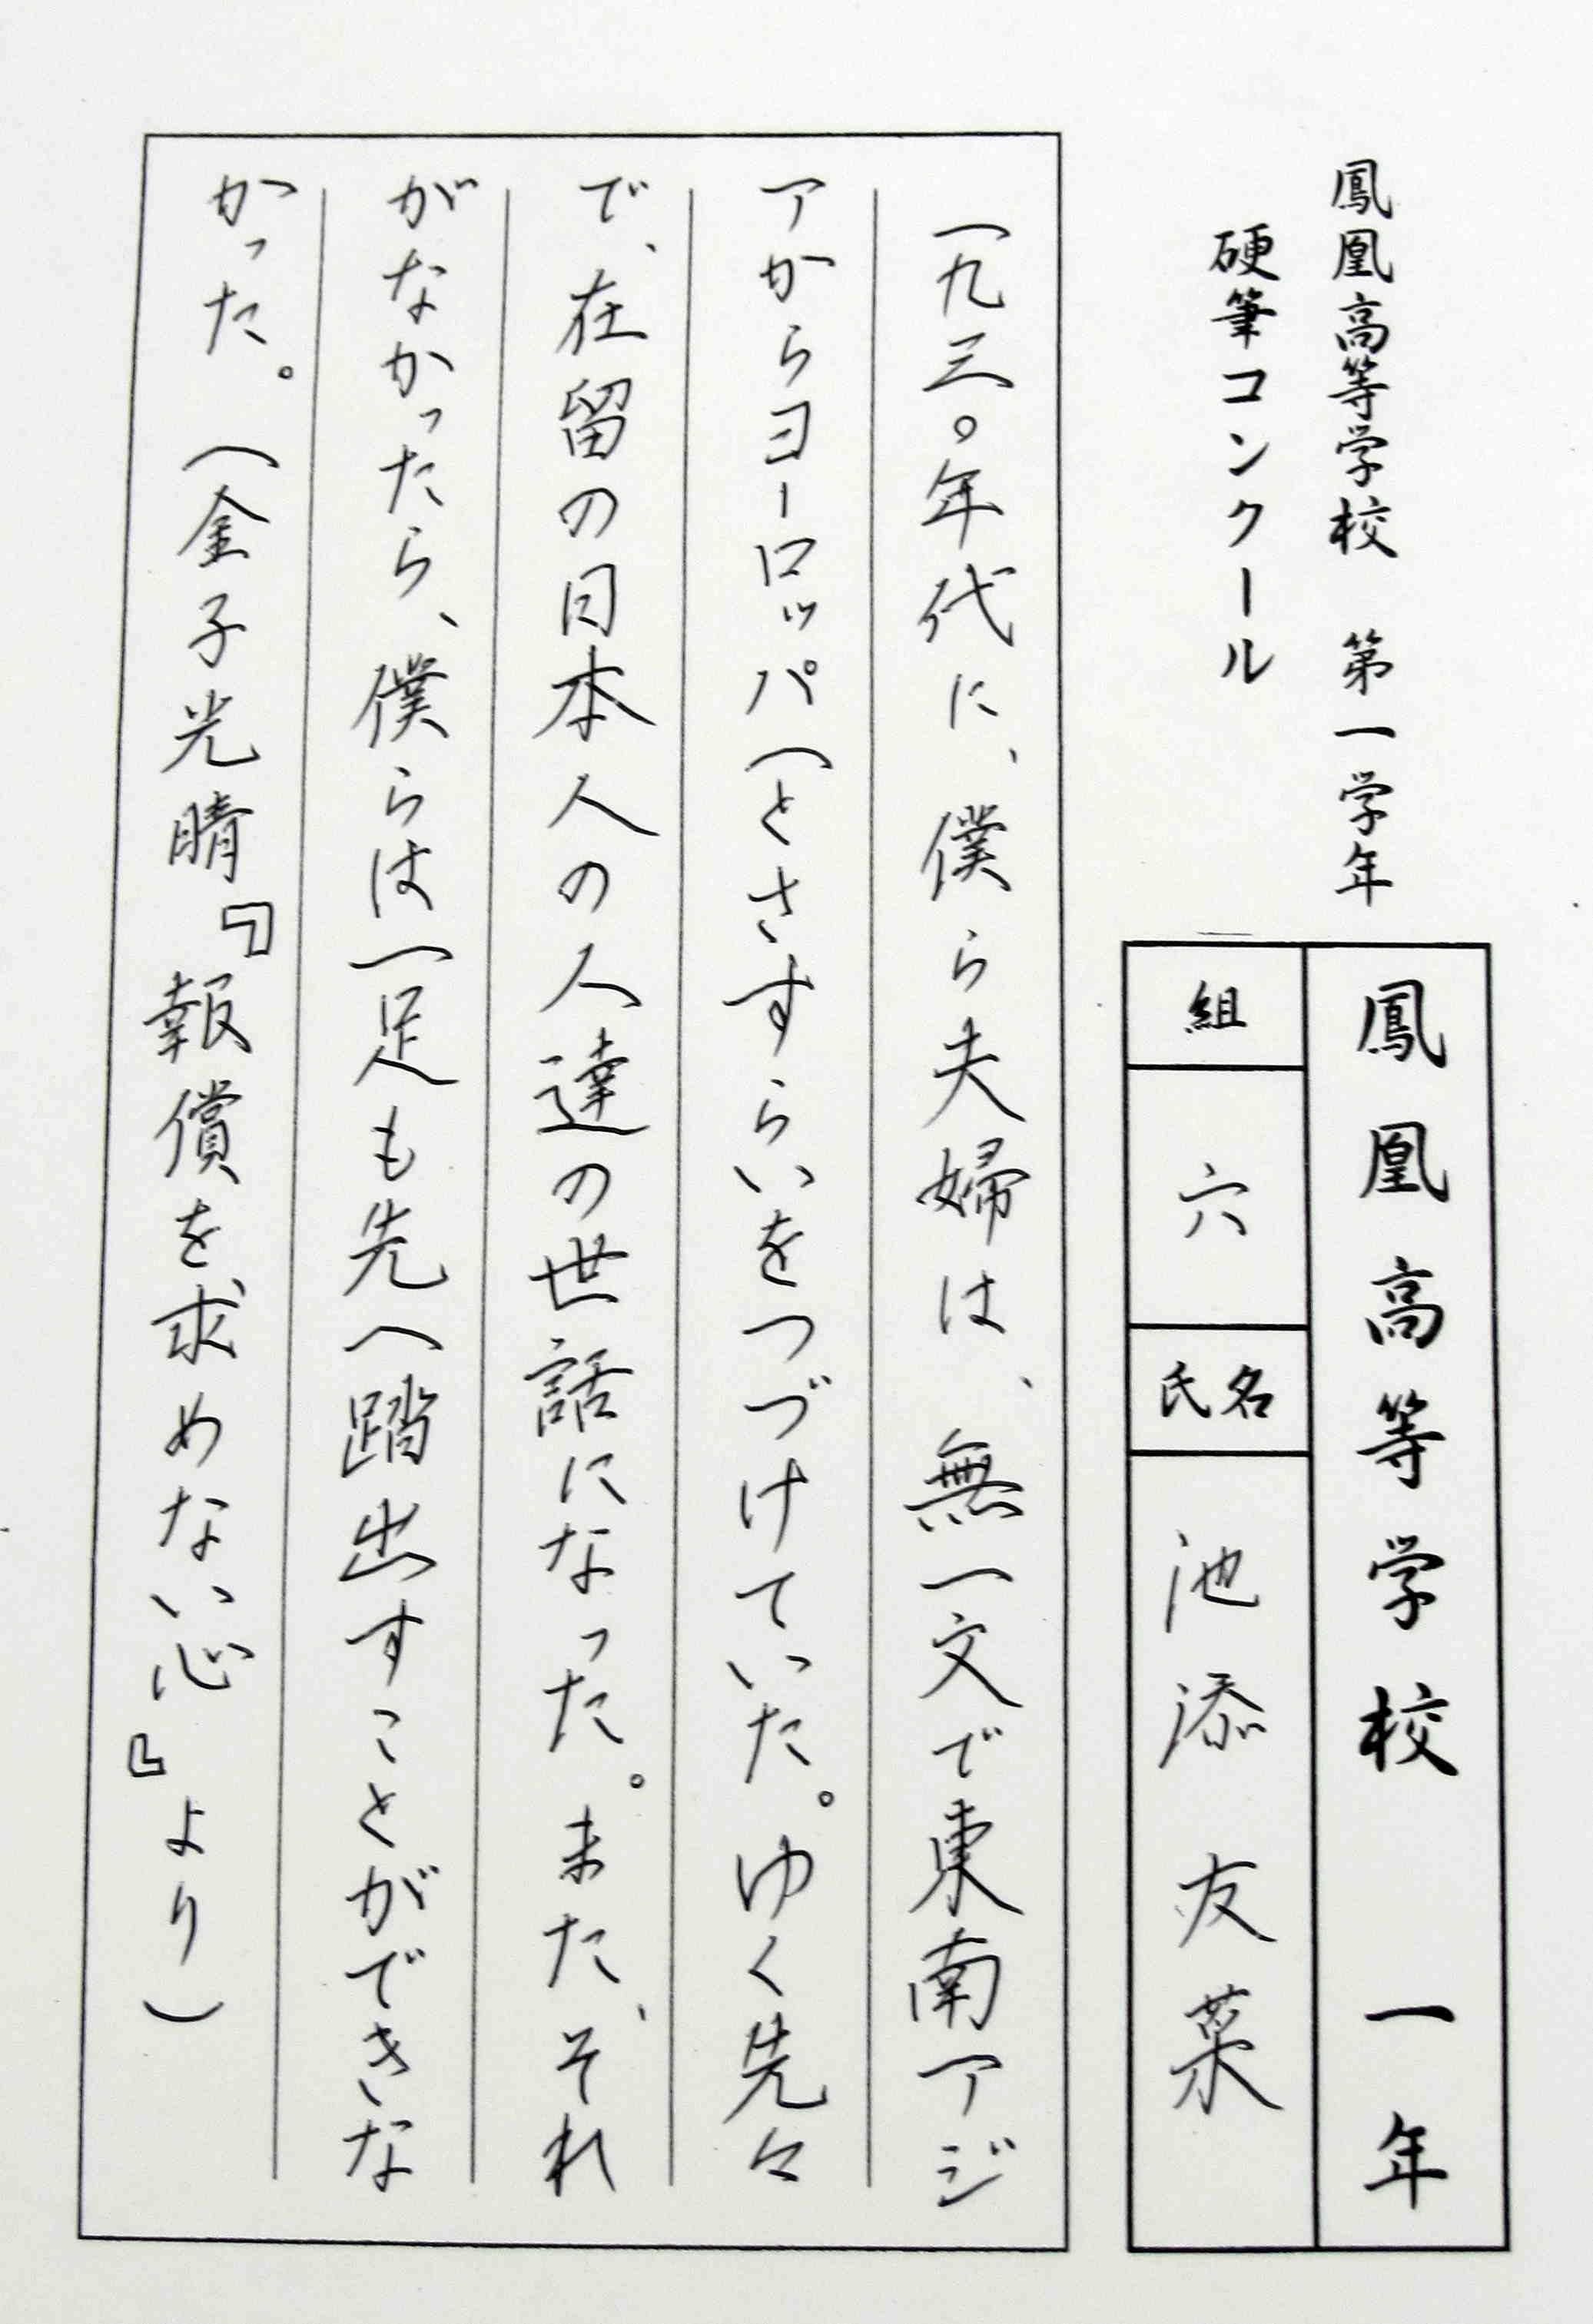 鳳凰高等学校　第一学年
硬筆コンクール
鳳凰高等学校　一年
組　六　氏名　池添　友菜
一九三〇年代に、僕ら夫婦は、無一文で東南アジ
アからヨーロッパへとさすらいをつづけていた。ゆく先々
で、在留の日本人の人達の世話になった。また、それ
がなかったら、僕らは一足も先へ踏出すことができな
かった。（金子光晴『報償を求めない心』より）